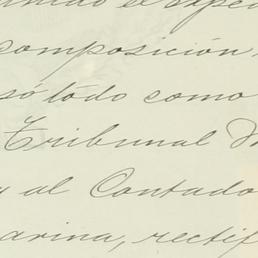 el
composición
só todo como
Tribunal
y al Contado
arina, rectif